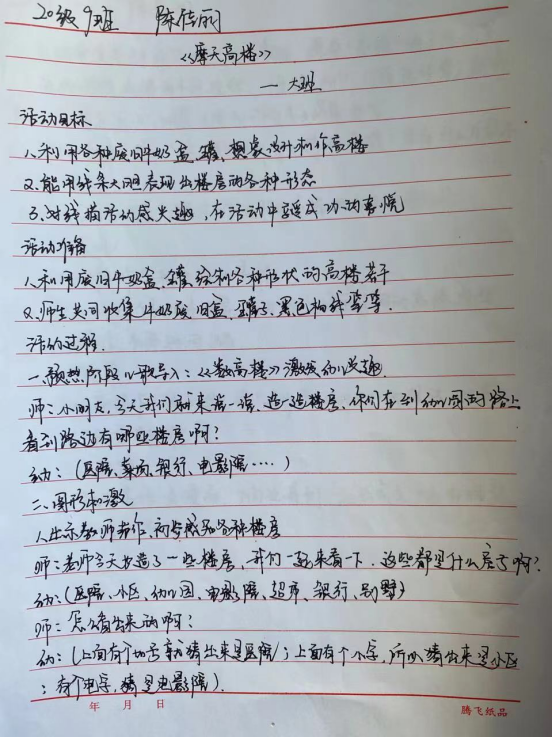 20级9班 陈佳丽
《摩天高楼》
— 大班
活动目标
1、利用各种废旧牛奶盒、罐、想象设计和作高楼
2、能用线条大胆表现出楼房的各种形态
3、对线描活动感兴趣，在活动中享受成功的喜悦
活动准备
1、利用废旧牛奶盒、罐绘制各种形状的高楼若干
2、师生共同收集牛奶废旧盒、罐子、黑色粗线笔等.
活动过程.
一、预热阶段儿歌导入：《数高楼》激发幼儿兴趣.
师：小朋友，今天我们就来搭一搭，造一造楼房，你们在到幼儿园的路上
看到路边有哪些楼房啊？
幼：（医院、药房、银行、电影院····）
二、图形刺激
1、出示教师范作，初步感知各种楼房
师：老师今天也造了一些楼房，我们一起来看一下，这些都是什么房子啊？
幼：（医院、小区、幼儿园、电影院、超市、银行、别墅）
师：怎么看出来的啊？
幼：（上面有个加号就猜出来是医院；上面有个小字，所以猜出来是小区
；有个电字，猜是电影院）.
年 月 日
腾飞纸品